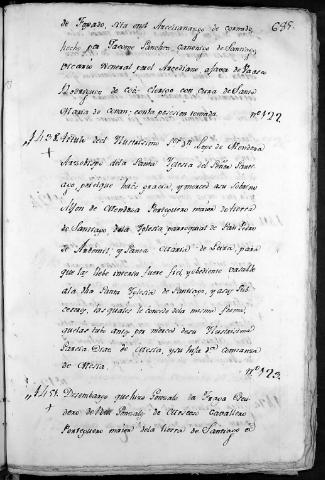 685.
de Tovado, sita enel Arcedianazgo de cornado,
hecho por Jacome Pancho, Canonigo de Santiago,
Vicario General porel Arcediano afavor de Vasco
Rodriguez de Coa: clerigo con cura de Santa
Maria de conan: conla posecion tomada. nº 122
1438. Titulo del Ilustrisimo Sor Dn Lope de Mendoza
Arzobispo dela Santa Yglesia del Señor Santi-
ago, porelque hace gracia, y merced asu sobrino
Alfon de Mendosa Portiguero maior de tierra
de Santiago, dela Yglesia parroquial de San Pedro
de Ardemil, y Santa Maria de Leira, para
que las llebe interin fuere fiel, y obediente vasallo
ala dha Santa Yglesia de Santiago, y asus Sub-
cesores, las quales le concede dela misma forma,
quelas tubo antes por merced desu Ilustrisima
Garcia Diaz de Mesia, y su hijo Dn
de Mesia. nº 123.
1451. Desembargo que hizo Gonzalo da Fraga Escu-
dero de Gonzalo de Mostoso Cavallero
Portiguero maior dela tierra de Santiago a